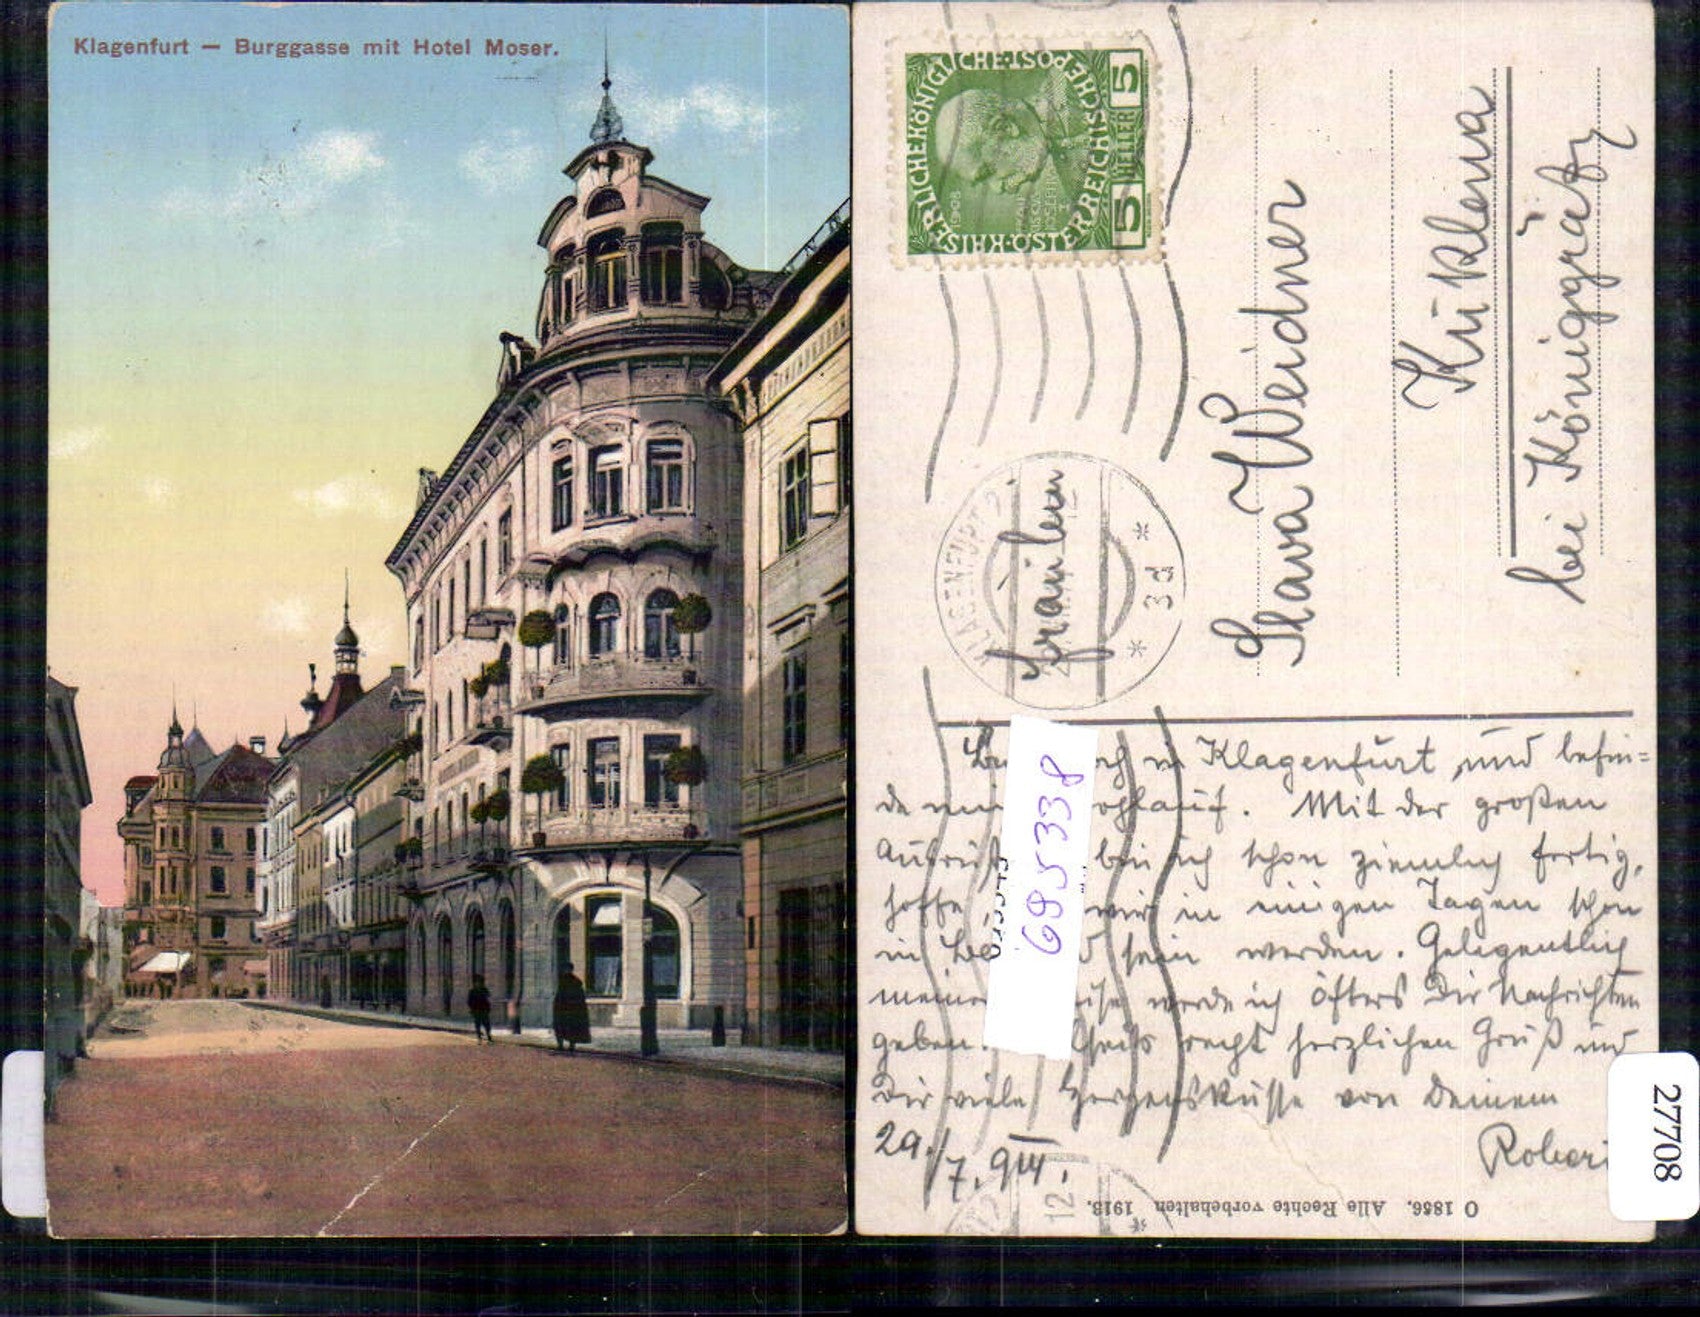 Klagenfurt — Burggasse mit Hotel Moser.
KAISERLICHE KÖNIGLICHE POST
ÖSTERREICHISCHE
5 HELLER 5
1908
KLAGENFURT 2
* 3d *
Fräulein
Slava Weidner
Kuklena
bei Königgrätz
in Klagenfurt und befin=
de Mit der großen
bin ich schon ziemlich fertig,
hoffe wir in einigen Tagen schon
in sein werden. Gelegentlich
meiner werde ich öfters Dir Nachrichten
geben. recht herzlichen Gruß und
Dir viele Herzensküsse von Deinem
29./7. 914. Robert
O 1856. Alle Rechte vorbehalten 1913.
695338
27708